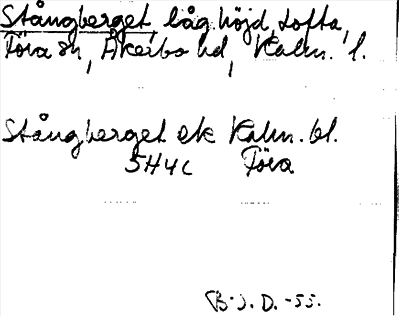 Stångberget, låg höjd, Lofta,
Föra sn, Åkerbo hd, Kalm. l.
Stångberget ek Kalm. bl.
5H4c Föra
B.J.D. -55.